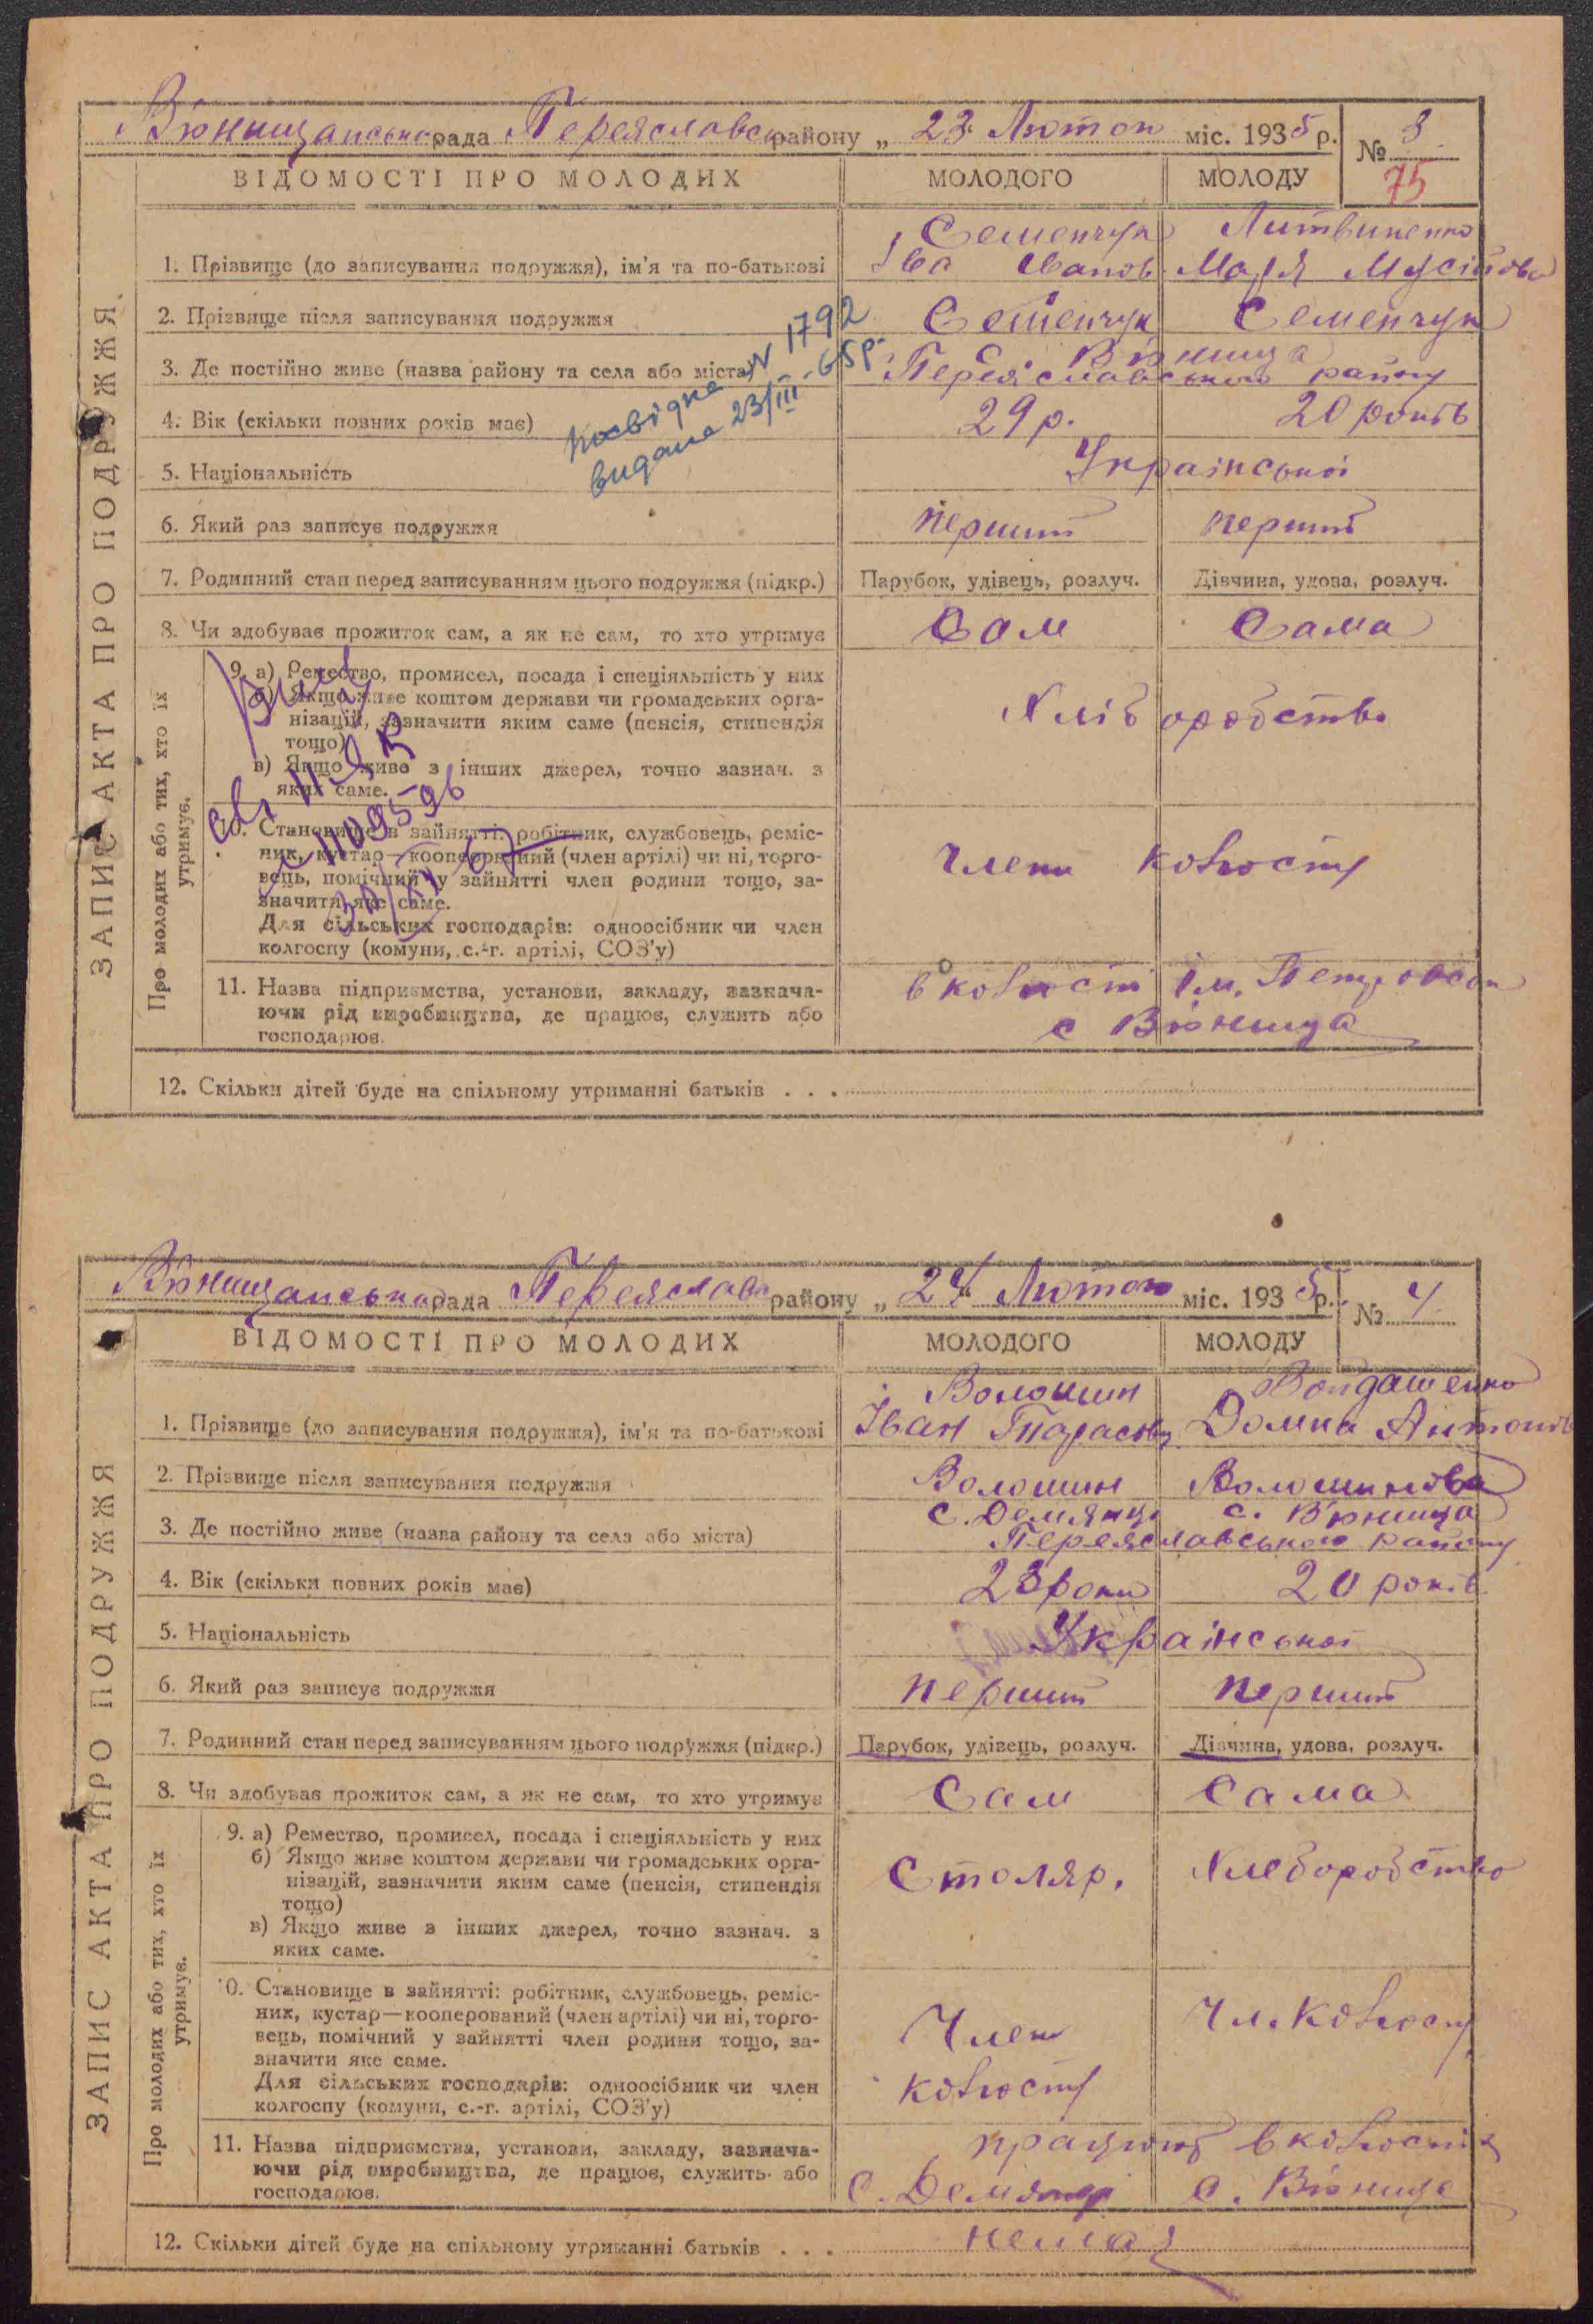 В'юнищанська рада Переяславськ району „ 23 " Лютого міс. 1935 р. № 3
75
ВІДОМОСТІ ПРО МОЛОДИХ МОЛОДОГО МОЛОДУ
ЗАПИС АКТА ПРО ПОДРУЖЖЯ
Семенчук Литвиненко
1. Прізвище (до записування подружжя), ім'я та по-батькові Іва Іванов. Марія Мусіївна
2. Прізвище після записування подружжя Семенчук Семенчук
3. Де постійно живе (назва району та села або міста) С. В'юнища
Переяславського району
Посвідка N 1792
видана 23/III-65р.
4. Вік (скільки повних років має) 29 р. 20 років
5. Національність Української
6. Який раз записує подружжя перший перший
7. Родинний стан перед записуванням цього подружжя (підкр.) Парубок, удівець, розлуч. Дівчина, удова, розлуч.
8. Чи здобуває прожиток сам, а як не сам, то хто утримує Сам Сама
Про молодих або тих, хто їх утримує.
9. а) Ремество, промисел, посада і спеціяльність у них
б) Якщо живе коштом держави чи громадських орга-
нізацій, зазначити яким саме (пенсія, стипендія
тощо) Хліборобство
в) Якщо живе з інших джерел, точно зазнач. з
яких саме.
10. Становище в зайнятті: робітник, службовець, реміс-
ник, кустар—кооперований (член артілі) чи ні, торго-
вець, помічний у зайнятті член родини тощо, за- Члени колгоспу
значити яке саме.
Для сільських господарів: одноосібник чи член
колгоспу (комуни, с.-г. артілі, СОЗ'у)
11. Назва підприємства, установи, закладу, зазнача- в колгоспі ім. Петровськ
ючи рід виробництва, де працює, служить або с В'юнища
господарює.
12. Скільки дітей буде на спільному утриманні батьків . . .
В'юнищанська рада Переяславс району „ 24 " Лютого міс. 1935 р. № 4
ВІДОМОСТІ ПРО МОЛОДИХ МОЛОДОГО МОЛОДУ
ЗАПИС АКТА ПРО ПОДРУЖЖЯ
Волошин
1. Прізвище (до записування подружжя), ім'я та по-батькові Іван Тарасов. Домна Антонів
2. Прізвище після записування подружжя Волошин Волошинова
3. Де постійно живе (назва району та села або міста) с. Демянці с. В'юнища
Переяславського району
4. Вік (скільки повних років має) 23 роки 20 років
5. Національність Української
6. Який раз записує подружжя перший перший
7. Родинний стан перед записуванням цього подружжя (підкр.) Парубок, удівець, розлуч. Дівчина, удова, розлуч.
8. Чи здобуває прожиток сам, а як не сам, то хто утримує Сам Сама
Про молодих або тих, хто їх утримує.
9. а) Ремество, промисел, посада і спеціяльність у них
б) Якщо живе коштом держави чи громадських орга- Столяр. Хлеборобство
нізацій, зазначити яким саме (пенсія, стипендія
тощо)
в) Якщо живе з інших джерел, точно зазнач. з
яких саме.
0. Становище в зайнятті: робітник, службовець, реміс-
ник, кустар—кооперований (член артілі) чи ні, торго-
вець, помічний у зайнятті член родини тощо, за- Член Чл. колгоспу
значити яке саме.
Для сільських господарів: одноосібник чи член колгоспу
колгоспу (комуни, с.-г. артілі, СОЗ'у)
11. Назва підприємства, установи, закладу, зазнача- працюют в колгоспіх
ючи рід виробництва, де працює, служить або с. Демянці с. В'юнища
господарює.
12. Скільки дітей буде на спільному утриманні батьків . . . немає